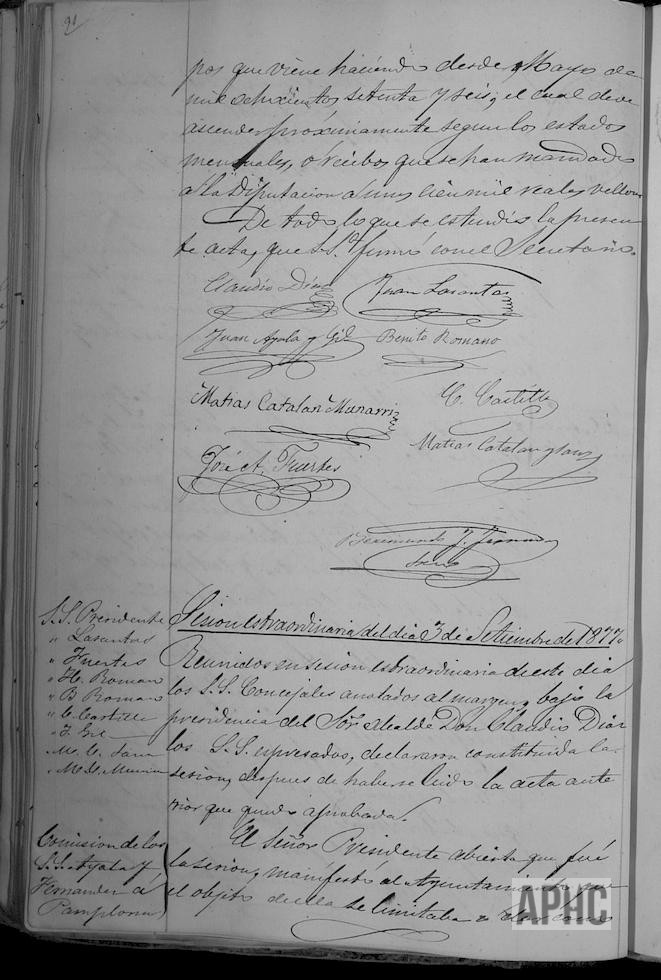 91
pos que viene haciendo desde Mayo de
mil ochocientos setenta y seis, el cual debe
ascender próximamente segun los estados
mensuales, o recibos que se han mandado
a la Diputacion a unos cien mil reales vellon.
De todo lo que se estendió la presen
te acta, que S.S. firmó con el Secretario.
Claudio Diaz
Juan Lasantas
Juan Ayala y Gil
Benito Romano
Matias Catalan Munarriz
C. Castillo
Matias Catalan y Sanz
José A. Fuertes
Beremundo J. Fernandez
Srio
Sesion estraordinaria del dia 3 de Setiembre de 1877.
S.S. Presidente
" Lasantas
" Fuertes
" Roman
" B Romano
" C. Castillo
" Gil
" M. C. Sanz
" M.
Reunidos en sesion estraordinaria de este dia
los S.S. Concejales anotados al margen, bajo la
presidencia del Sor. Alcalde Don Claudio Diaz
los S.S. espresados, declararon constituida la
sesion, despues de haberse leido la acta ante
rior que quedó aprobada.
Comision de los
S.S. Ayala y
Fernandez á
Pamplona
El Señor Presidente abierta que fué
la sesion, manifestó al Ayuntamiento que
el objeto de ella se limitaba a dar
APHC